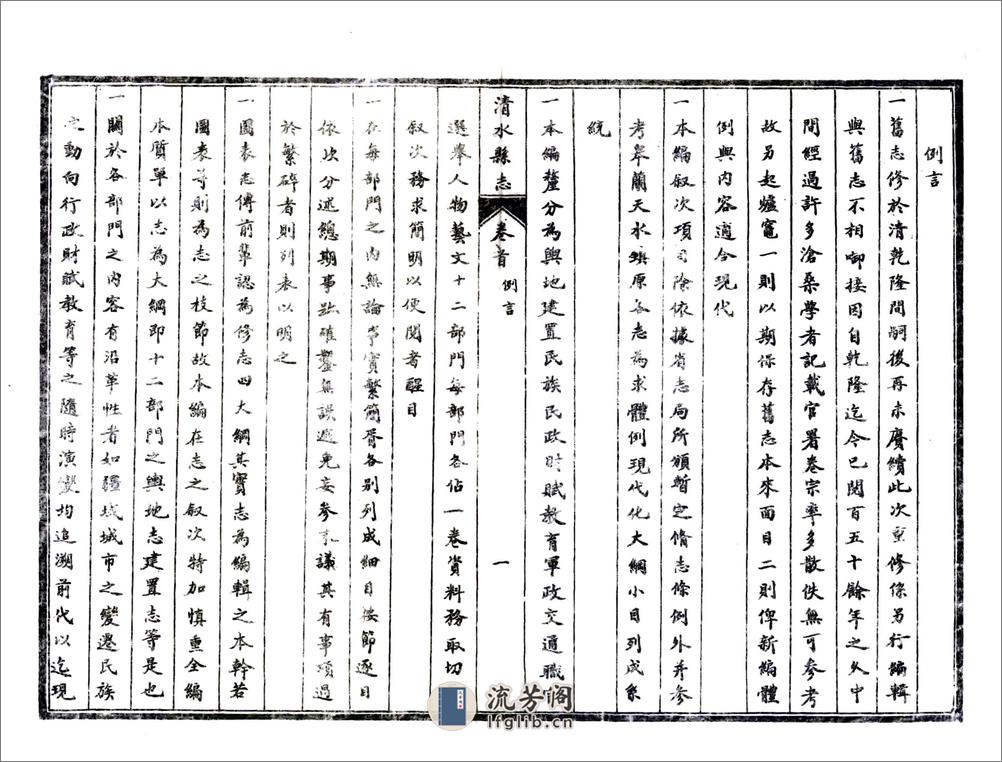 例言
一舊志修於清乾隆間嗣後再未賡續此次重修係另行編輯
與舊志不相啣接因自乾隆迄今已閱百五十餘年之久中
間經過許多滄桑學者記載官署卷宗率多散佚無可參考
故另起爐竈一則以期保存舊志本來面目二則俾新編體
例與內容適合現代
一本編叙次項目除依據省志局所頒暫定脩志條例外并參
考皋蘭天水鎮原各志為求體例現代化大綱小目列成系
統
一本編釐分為輿地建置民族民政財賦教育軍政交通職
清水縣志
卷首
例言
一
選舉人物藝文十二部門每部門各佔一卷資料務取切
叙次務求簡明以便閱者醒目
一在每部門之內無論事實繁簡胥各別列成細目按節逐目
依次分述總期事跡確鑿無誤避免妄參末議其有事項過
於繁碎者則列表以明之
一圖表志傳前輩認為修志四大綱其實志為編輯之本幹若
圖表等則為志之枝節故本編在志之叙次特加慎重全編
本質單以志為大綱即十二部門之輿地志建置志等是也
一關於各部門之內容有沿革性者如疆域城市之變遷民族
之動向行政財賦教育等之隨時演變均追溯前代以迄現
流芳阁
lfglib.com